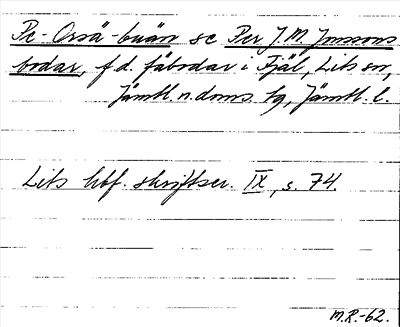 Pe-Orsä-buan se Per J M Jonssons
bodar, f.d. fäbodar i Fjäl, Lits sn,
Jämtl. n. doms. tg, Jämtl. l.
Lits hbf. skriftser. IX, s. 74.
M.R.-62.